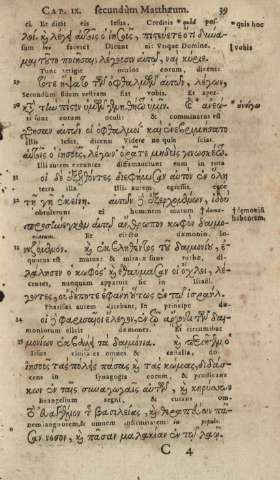 CAP. IX. secundùm Matthæum. 39
cæci. Et dicit eis Iesus, Creditis quòd pos-
φλοί. κ λέγει αὐτοῖς ὁ ἰησοῦς, πιστεύετε ὅτι δύνα-
sum hoc facere? Dicunt ei: Vtique Domine.
μαι τοῦτο ποιῆσαι; λέγουσιν αὐτῷ, ναὶ κύριε.
vobis
Tunc tetigit oculos eorum, dicens:
τότε ἥψατο τῶν ὀφθαλμῶν αὐτῶν, λέγων,
29
Secundùm fidem vestram fiat vobis. Et aper-
κατὰ τὴν πίστιν ὑμῶν γενηθήτω ὑμῖν. κ ἀνεῴ-
30
ti sunt eorum oculi: & comminatus est
χθησαν αὐτῶν οἱ ὀφθαλμοί καὶ ἐνεβριμήσατο
illis Iesus, dicens: Videte ne quis sciat.
αὐτοῖς ὁ ἰησοῦς, λέγων· ὁρᾶτε μηδεὶς γινωσκέτω.
Illi autem exeuntes diffamauerunt eum in tota
οἱ δὲ ἐξελθόντες διεφήμισαν αὐτὸν ἐν ὅλῃ
31
terra illa. Illis autem egressis, ecce
τῇ γῇ ἐκείνῃ. αὐτῶν δὲ ἐξερχομένων, ἰδοὺ
32
obtulerunt ei hominem mutum
προσήνεγκαν αὐτῷ ἄνθρωπον κωφὸν δαιμο-
Et eiecto dæmonio, lo-
νιζόμενον. κ ἐκβληθέντος τοῦ δαιμονίου, ἐ-
33
quutus est mutus: & miratæ sunt turbæ, di-
λάλησεν ὁ κωφός· κ ἐθαύμασαν οἱ ὄχλοι, λέ-
centes, nunquam apparuit sic in Israël.
γοντες, οὐδέποτε ἐφάνη οὕτως ἐν τῷ ἰσραήλ.
Pharisæi autem dicebant, In principe
οἱ δὲ φαρισαῖοι ἔλεγον, ἐν τῷ ἄρχοντι τῶν δαι-
34
dæmoniorum eiicit dæmones. Et circumibat
μονίων ἐκβάλλει τὰ δαιμόνια. κ περιῆγεν ὁ
35
Iesus ciuitates omnes & castella, do-
ἰησοῦς τὰς πόλεις πάσας κ τὰς κώμας, διδάσ-
cens in synagogis eorum, & prædicans
κων ἐν ταῖς συναγωγαῖς αὐτῶν, κ κηρύσσων
Euangelium regni, & curans om-
τὸ εὐαγγέλιον τῆς βασιλείας, κ θεραπεύων πᾶ-
nem languorem, & omnem infirmitatem in populo.
σαν νόσον, κ πᾶσαν μαλακίαν ἐν τῷ λαῷ.
C 4